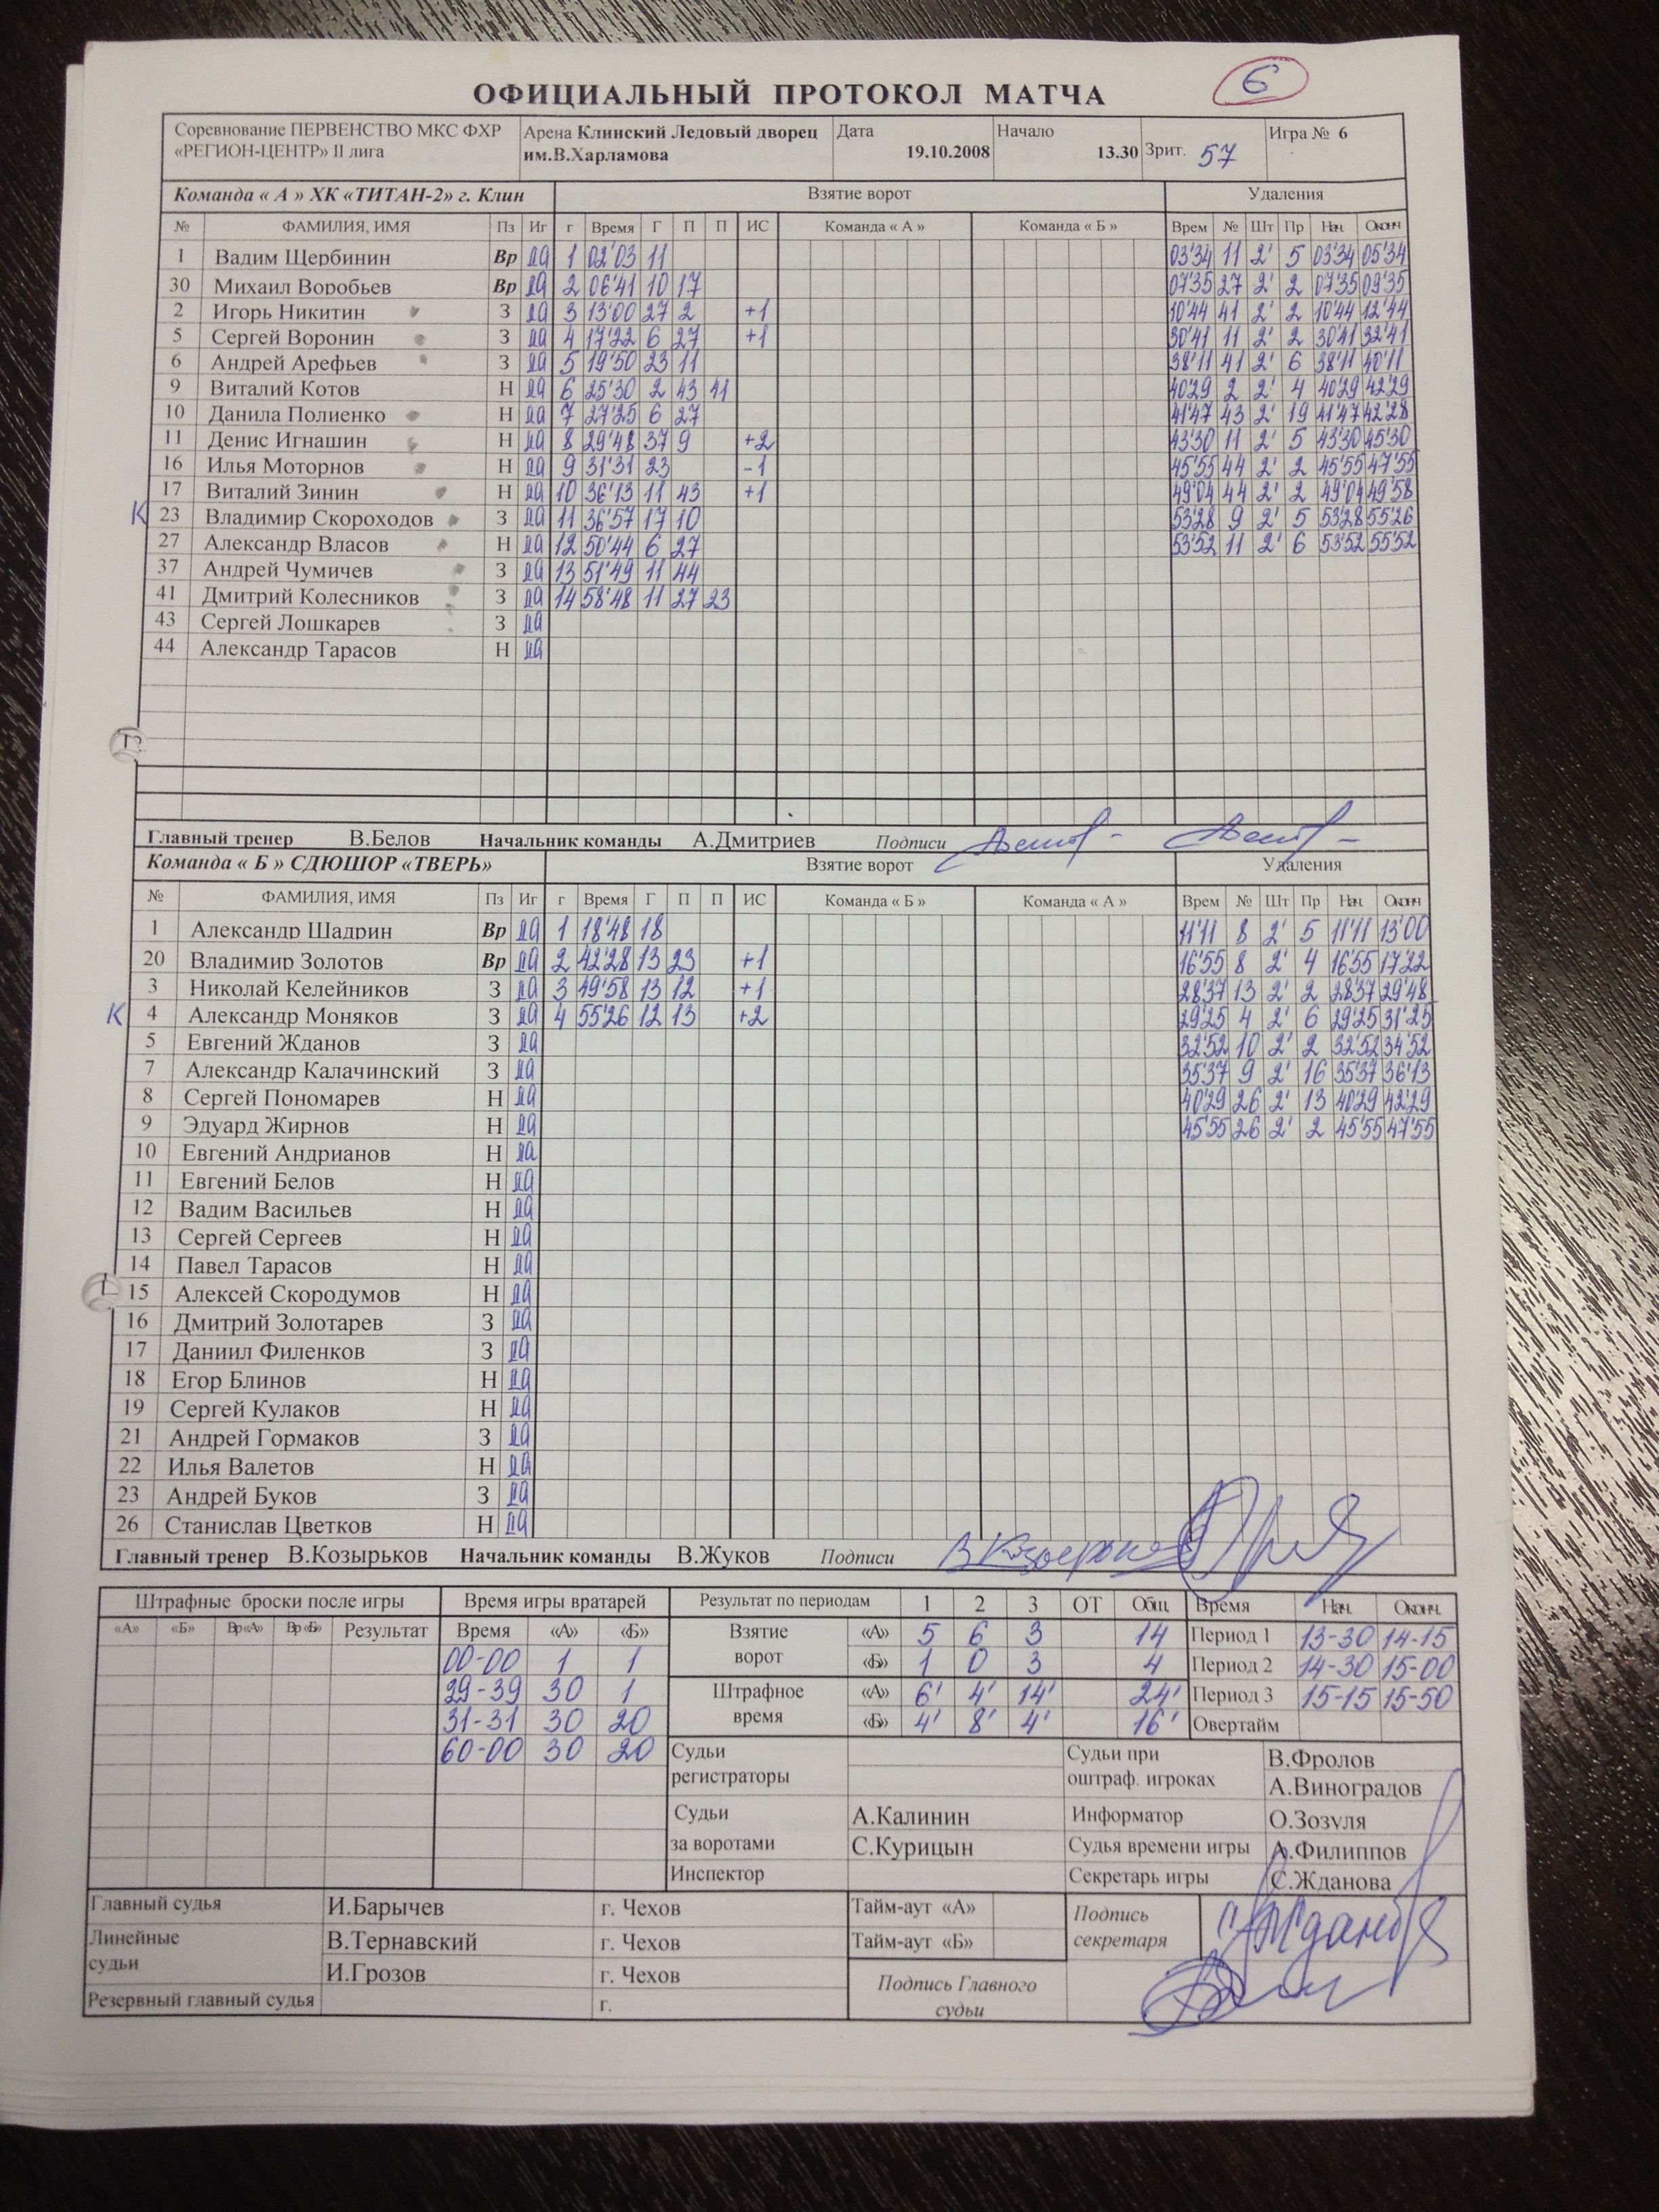 ОФИЦИАЛЬНЫЙ ПРОТОКОЛ МАТЧА 6
Соревнование ПЕРВЕНСТВО МКС ФХР «РЕГИОН-ЦЕНТР» II лига Арена Клинский Ледовый дворец им.В.Харламова Дата 19.10.2008 Начало 13.30 Зрит. 57 Игра № 6
Команда « А » ХК «ТИТАН-2» г. Клин Взятие ворот Удаления
№ ФАМИЛИЯ, ИМЯ Пз Иг г Время Г П П ИС Команда « А » Команда « Б » Врем № Шт Пр Нач. Оконч
1 Вадим Щербинин Вр да 1 02'03 11 03'34 11 2' 5 03'34 05'34
30 Михаил Воробьев Вр да 2 06'41 10 17 07'35 27 2' 2 07'35 09'35
2 Игорь Никитин З да 3 13'00 27 2 +1 10'44 41 2' 2 10'44 12'44
5 Сергей Воронин З да 4 17'22 6 27 +1 30'41 11 2' 2 30'41 32'41
6 Андрей Арефьев З да 5 19'50 23 11 38'11 41 2' 6 38'11 40'11
9 Виталий Котов Н да 6 25'30 2 43 41 40'29 2 2' 4 40'29 42'29
10 Данила Полиенко Н да 7 27'25 6 27 41'47 43 2' 19 41'47 42'28
11 Денис Игнашин Н да 8 29'48 37 9 +2 43'30 11 2' 5 43'30 45'30
16 Илья Моторнов Н да 9 31'31 23 -1 45'55 44 2' 2 45'55 47'55
17 Виталий Зинин Н да 10 36'13 11 43 +1 49'04 44 2' 2 49'04 49'58
К 23 Владимир Скороходов З да 11 36'57 17 10 53'28 9 2' 5 53'28 55'26
27 Александр Власов Н да 12 50'44 6 27 53'52 11 2' 6 53'52 55'52
37 Андрей Чумичев З да 13 51'49 11 44
41 Дмитрий Колесников З да 14 58'48 11 27 23
43 Сергей Лошкарев З да
44 Александр Тарасов Н да
Главный тренер В.Белов Начальник команды А.Дмитриев Подписи
Команда « Б » СДЮШОР «ТВЕРЬ» Взятие ворот Удаления
№ ФАМИЛИЯ, ИМЯ Пз Иг г Время Г П П ИС Команда « Б » Команда « А » Врем № Шт Пр Нач. Оконч
1 Александр Шадрин Вр да 1 18'48 18 11'11 8 2' 5 11'11 13'00
20 Владимир Золотов Вр да 2 42'28 13 23 +1 16'55 8 2' 4 16'55 17'22
3 Николай Келейников З да 3 49'58 13 12 +1 28'37 13 2' 2 28'37 29'48
К 4 Александр Моняков З да 4 55'26 12 13 +2 29'25 4 2' 6 29'25 31'25
5 Евгений Жданов З да 32'52 10 2' 2 32'52 34'52
7 Александр Калачинский З да 35'37 9 2' 16 35'37 36'13
8 Сергей Пономарев Н да 40'29 26 2' 13 40'29 42'29
9 Эдуард Жирнов Н да 45'55 26 2' 2 45'55 47'55
10 Евгений Андрианов Н да
11 Евгений Белов Н да
12 Вадим Васильев Н да
13 Сергей Сергеев Н да
14 Павел Тарасов Н да
15 Алексей Скородумов Н да
16 Дмитрий Золотарев З да
17 Даниил Филенков З да
18 Егор Блинов Н да
19 Сергей Кулаков Н да
21 Андрей Гормаков З да
22 Илья Валетов Н да
23 Андрей Буков З да
26 Станислав Цветков Н да
Главный тренер В.Козырьков Начальник команды В.Жуков Подписи
Штрафные броски после игры Время игры вратарей Результат по периодам 1 2 3 ОТ Общ. Время Нач. Оконч.
«А» «Б» Вр«А» Вр«Б» Результат Время «А» «Б» Взятие ворот «А» 5 6 3 14 Период 1 13-30 14-15
00-00 1 1 «Б» 1 0 3 4 Период 2 14-30 15-00
29-39 30 1 Штрафное время «А» 6' 4' 14' 24' Период 3 15-15 15-50
31-31 30 20 «Б» 4' 8' 4' 16' Овертайм
60-00 30 20 Судьи регистраторы Судьи при оштраф. игроках В.Фролов
А.Виноградов
Судьи за воротами А.Калинин Информатор О.Зозуля
С.Курицын Судья времени игры А.Филиппов
Инспектор Секретарь игры С.Жданова
Главный судья И.Барычев г. Чехов Тайм-аут «А» Подпись секретаря
Линейные судьи В.Тернавский г. Чехов Тайм-аут «Б»
И.Грозов г. Чехов Подпись Главного судьи
Резервный главный судья г.